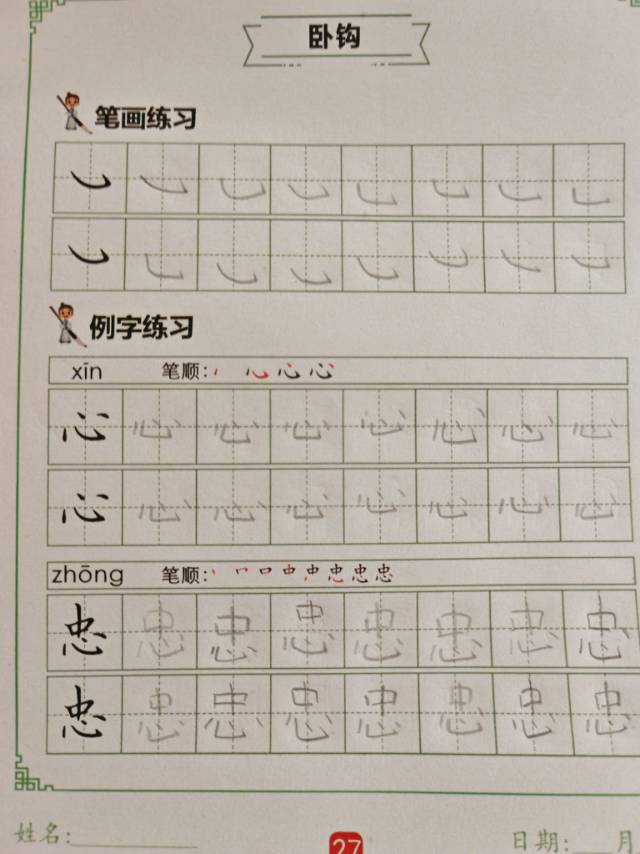 卧钩
笔画练习
㇃ ㇃ ㇃ ㇃ ㇃ ㇃ ㇃ ㇃
㇃ ㇃ ㇃ ㇃ ㇃ ㇃ ㇃ ㇃
例字练习
xīn 笔顺:
心 心 心 心 心 心 心 心
心 心 心 心 心 心 心 心
zhōng 笔顺:
忠 忠 忠 忠 忠 忠 忠 忠
忠 忠 忠 忠 忠 忠 忠 忠
姓名: 27 日期: 月